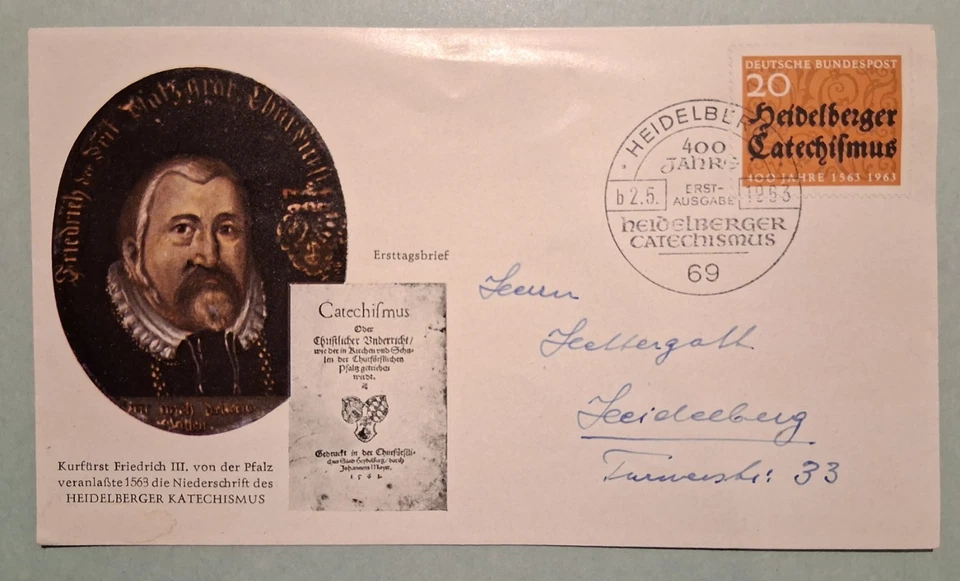 Friedrich der Drit Pfatzgraf Churfürst
Ersttagsbrief
Catechiſmus
Oder
Chriſtlicher Vnderricht/
wie der in Kirchen vnd Schu-
len der Churfürſtlichen
Pfaltz getrieben
wirdt.
Gedruckt in der Churfürſtli-
chen Stad Heydelberg/ durch
Johannem Mayer.
Kurfürst Friedrich III. von der Pfalz
veranlaßte 1563 die Niederschrift des
HEIDELBERGER KATECHISMUS
DEUTSCHE BUNDESPOST
20
Heidelberger
Catechiſmus
400 JAHRE 1563 1963
HEIDELBERG
400
JAHRE
ERST-
AUSGABE
b 2.5. 1963
heidelberger
CATECHISMUS
69
Herrn
Heidelberg
Turnerstr: 33